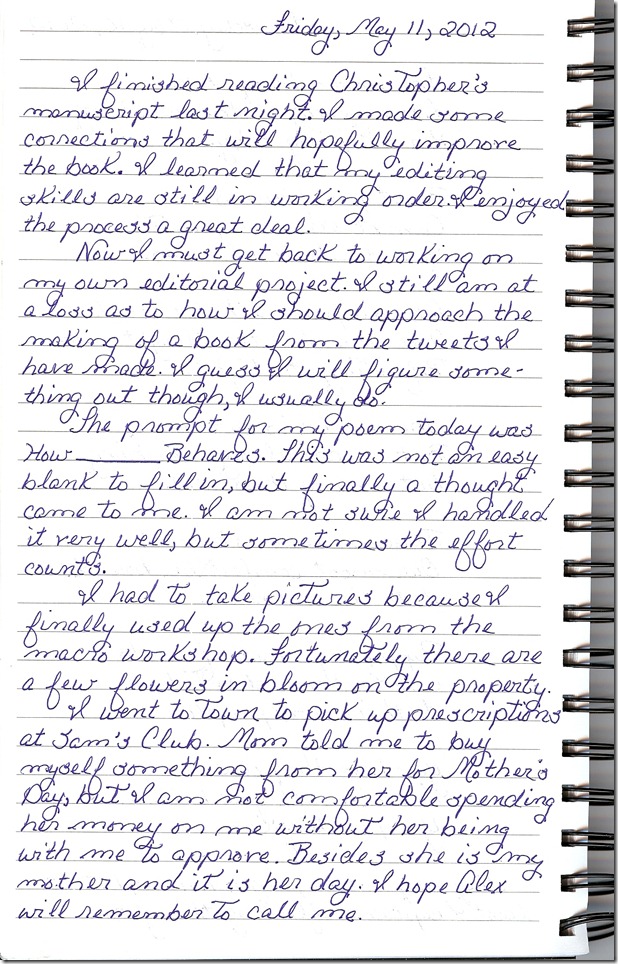 Friday, May 11, 2012
I finished reading Christopher's
manuscript last night. I made some
corrections that will hopefully improve
the book. I learned that my editing
skills are still in working order. I enjoyed
the process a great deal.
Now I must get back to working on
my own editorial project. I still am at
a loss as to how I should approach the
making of a book from the tweets I
have made. I guess I will figure some-
thing out though, I usually do.
The prompt for my poem today was
How ______ Behaves. This was not an easy
blank to fill in, but finally a thought
came to me. I am not sure I handled
it very well, but sometimes the effort
counts.
I had to take pictures because I
finally used up the ones from the
macro workshop. Fortunately there are
a few flowers in bloom on the property.
I went to Town to pick up prescriptions
at Sam's Club. Mom told me to buy
myself something from her for Mother's
Day, but I am not comfortable spending
her money on me without her being
with me to approve. Besides she is my
mother and it is her day. I hope Alex
will remember to call me.